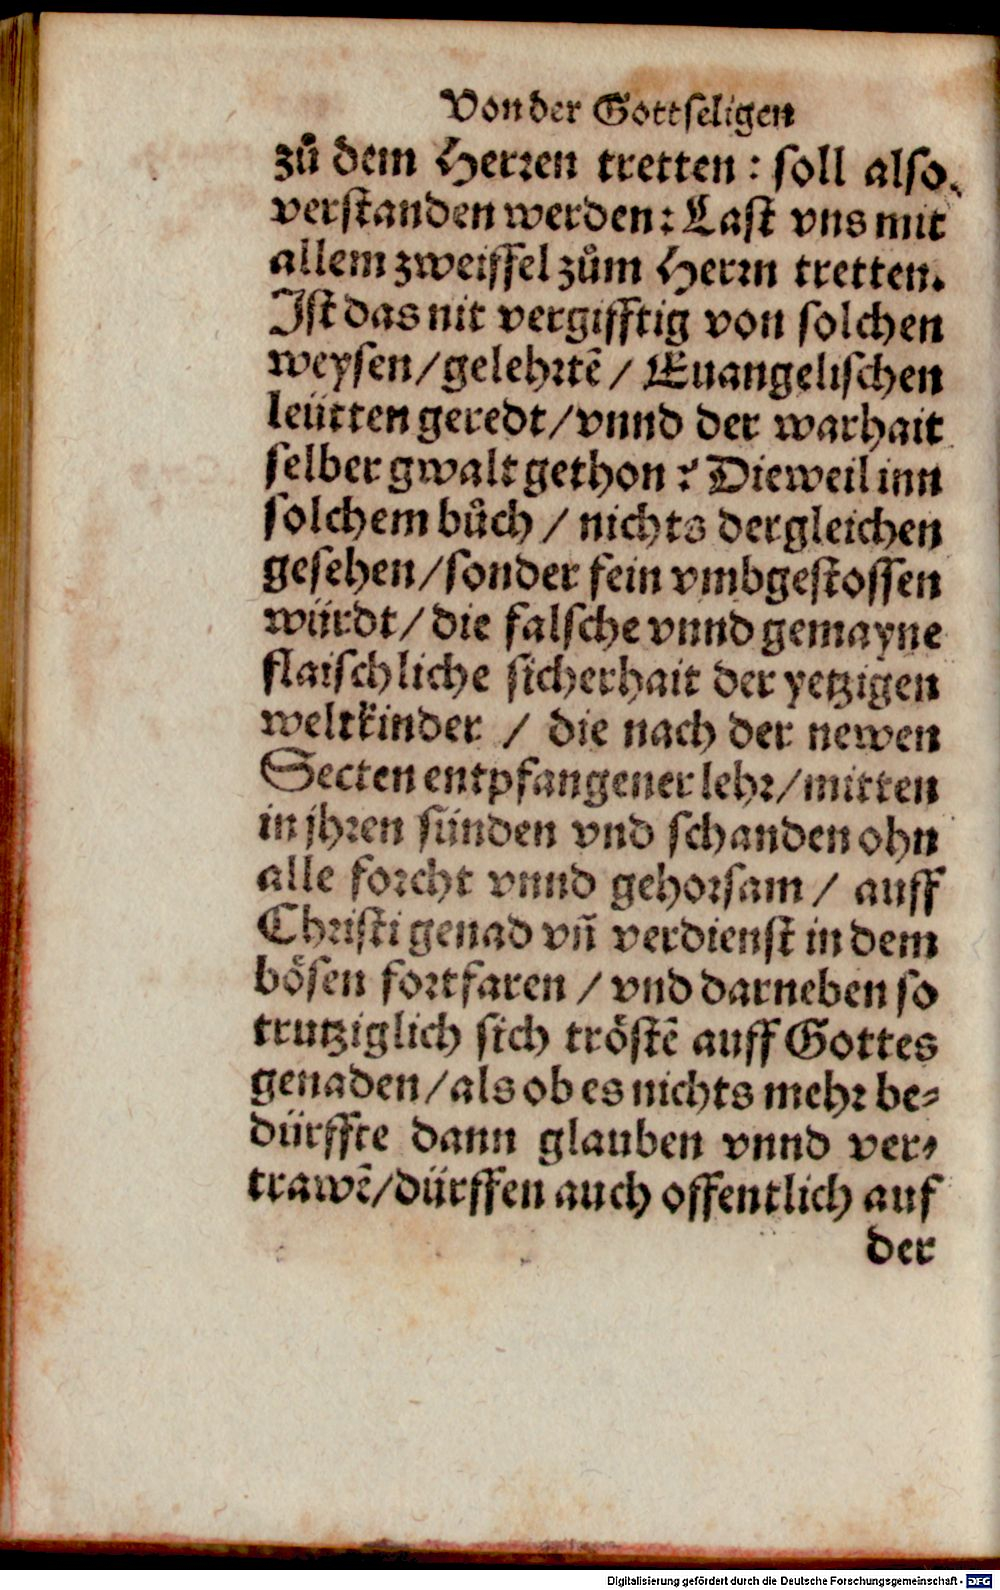 Von der Gottseligen
zů dem Herren tretten: soll also
verstanden werden: Last vns mit
allem zweiffel zům Herrn tretten.
Ist das nit vergifftig von solchen
weysen/gelehrtẽ/ Euangelischen
leütten geredt/vnnd der warhait
selber gwalt gethon? Dieweil inn
solchem bůch/ nichts dergleichen
gesehen/sonder fein vmbgestossen
würdt/ die falsche vnnd gemayne
flaischliche sicherhait der yetzigen
weltkinder / die nach der newen
Secten entpfangener lehr/mitten
in jhren sünden vnd schanden ohn
alle forcht vnnd gehorsam/ auff
Christi genad vñ verdienst in dem
bösen fortfaren / vnd darneben so
trutziglich sich tröstẽ auff Gottes
genaden/als ob es nichts mehr be-
dürffte dann glauben vnnd ver-
trawẽ/dürffen auch offentlich auf
der
Digitalisierung gefördert durch die Deutsche Forschungsgemeinschaft - DFG